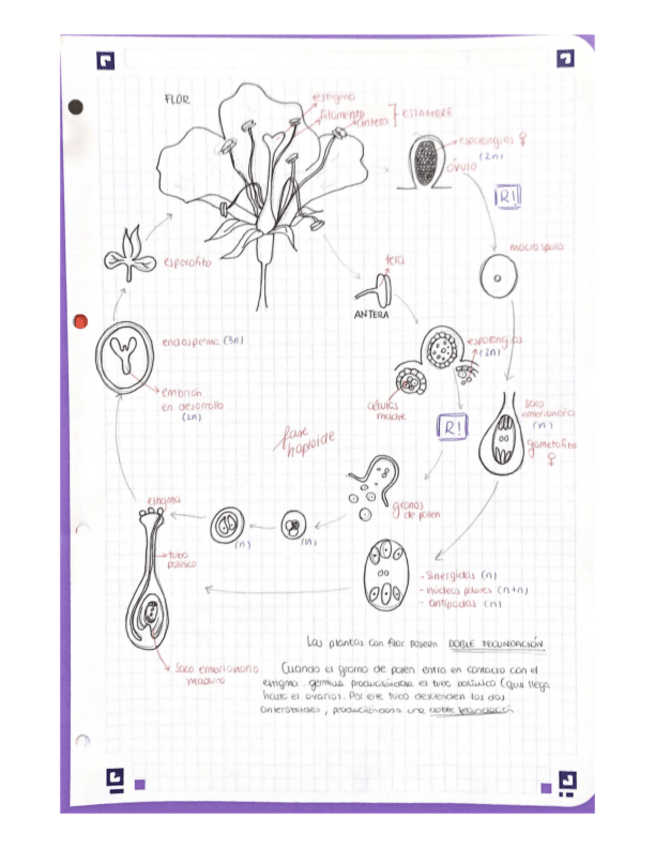 FLOR
estigma
filamento
antera
ESTAMBRE
esporangios ♀
(2n)
óvulo
R!
macrospora
esporofito
teca
ANTERA
endosperma (3n)
esporangios
(2n)
embrión
en desarrollo
(2n)
células
madre
R!
saco
embrionario
(n)
gametofito
♀
fase
haploide
granos
de polen
estigma
(n)
(n)
tubo
polínico
- Sinergidas (n)
- núcleos polares (n+n)
- antípodas (n)
Las plantas con flor poseen DOBLE FECUNDACIÓN
saco embrionario
maduro
Cuando el grano de polen entra en contacto con el
estigma, germina produciéndose el tubo polínico (que llega
hasta el ovario). Por este tubo descienden los dos
anterozoides, produciéndose una doble fecundación